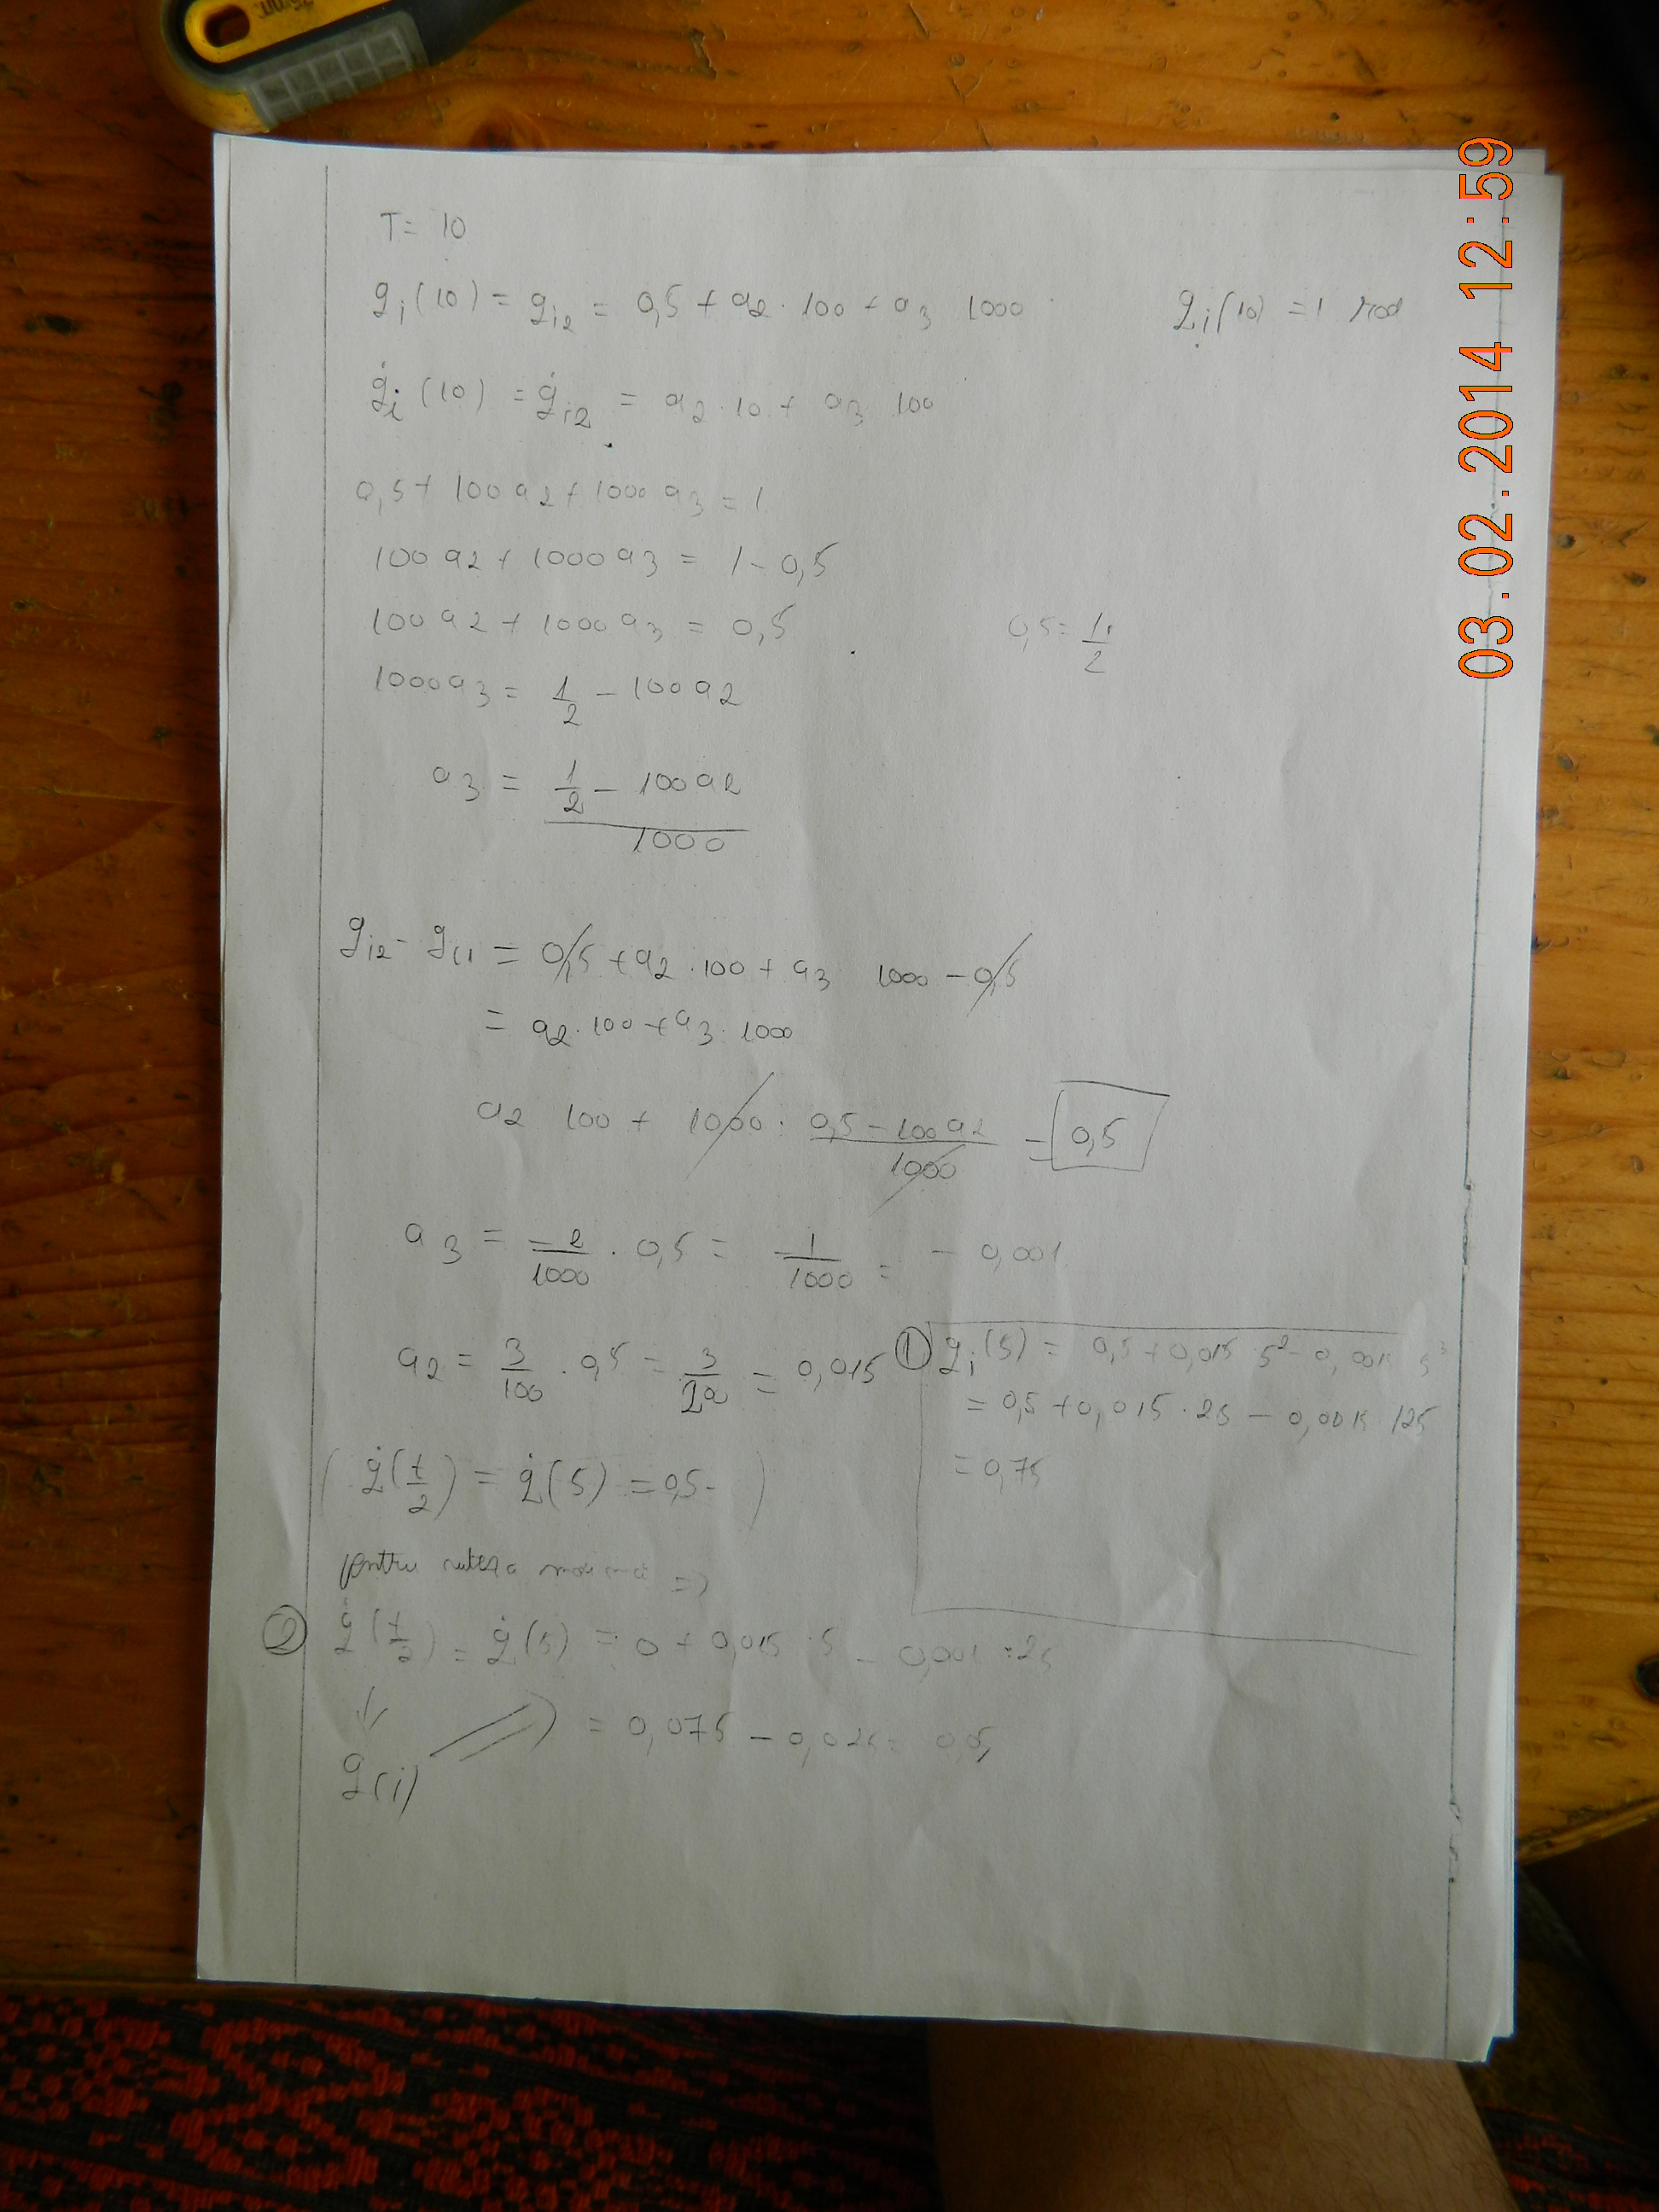 T= 10
q_i(10) = q_i2 = 0,5 + a2 · 100 + a3 1000
q_i(10) = 1 rad
q̇_i(10) = q̇_i2 = a2 · 10 + a3 100
0,5 + 100 a2 + 1000 a3 = 1
100 a2 + 1000 a3 = 1 - 0,5
100 a2 + 1000 a3 = 0,5
0,5 = 1/2
1000 a3 = 1/2 - 100 a2
a3 = (1/2 - 100 a2)/1000
q_i2 - q_i1 = 0,5 + a2 · 100 + a3 1000 - 0,5
= a2 · 100 + a3 · 1000
a2 100 + 1000 · (0,5 - 100 a2)/1000 = 0,5
a3 = -2/1000 · 0,5 = -1/1000 = - 0,001
a2 = 3/100 · 0,5 = 3/200 = 0,015
① q_i(5) = 0,5 + 0,015 5² - 0,001 5³
= 0,5 + 0,015 · 25 - 0,001 125
= 0,75
( q̇(t/2) = q̇(5) = 0,5 - )
pentru =>
② q̇(t/2) = q̇(5) = 0 + 0,015 · 5 - 0,001 · 25
= 0,075 - 0,025 = 0,05
q(i)
03.02.2014 12:59